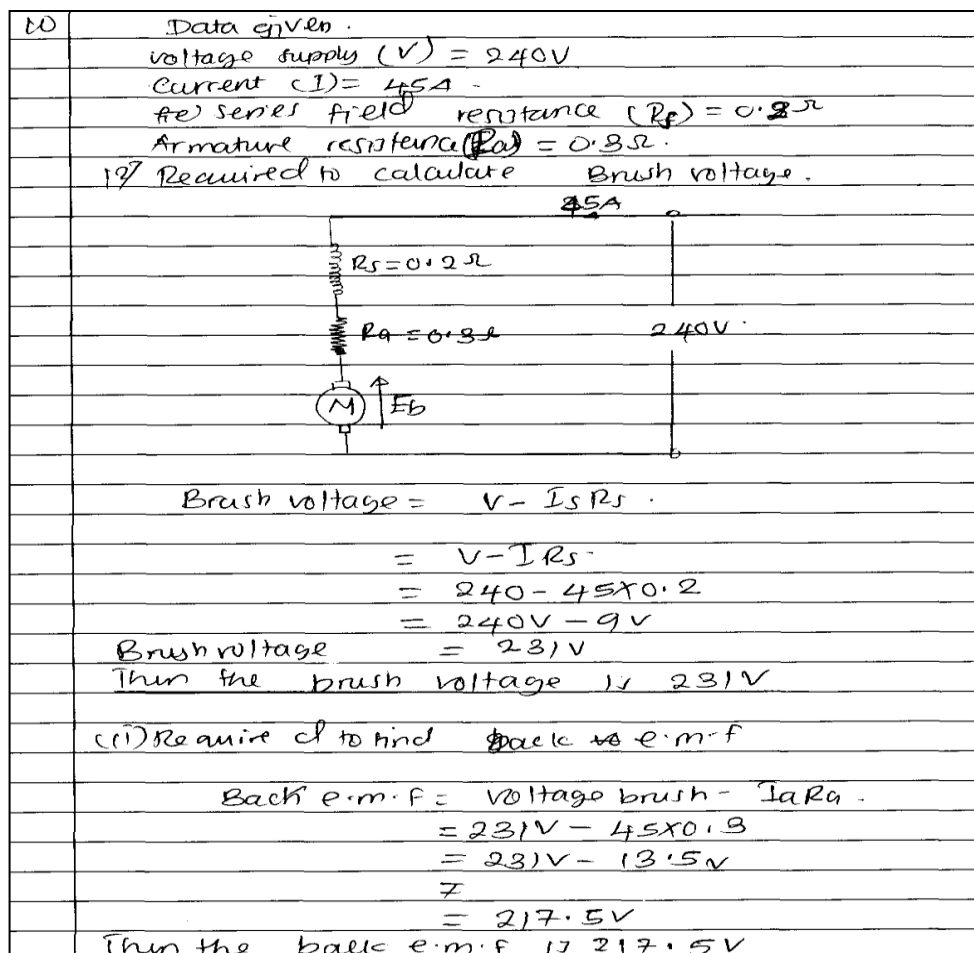 Data given.
voltage supply (V) = 240V
Current (I) = 45A.
series field resistance (Rf) = 0.2Ω
Armature resistence (Ra) = 0.3Ω.
Required to calculate Brush voltage.
45A
Rs=0.2Ω
Ra=0.3Ω
240V.
M
Eb
Brush voltage = V - IsRs.
= V-IRs.
= 240 - 45×0.2
= 240V - 9V
Brush voltage = 231V
Thun the brush voltage is 231V
(ii) Required to find back e.m.f
Back e.m.f = Voltage brush - IaRa.
= 231V - 45×0.3
= 231V - 13.5V
=
= 217.5V
Thun the back e.m.f is 217.5V